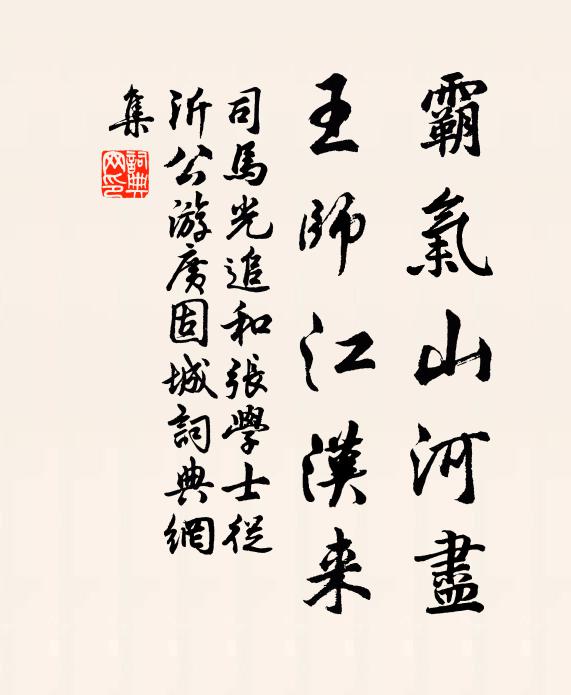 霸氣山河盡
王師江漢来
司馬光追和張學士從
沂公游廣固城詞典網
集
詞典網印